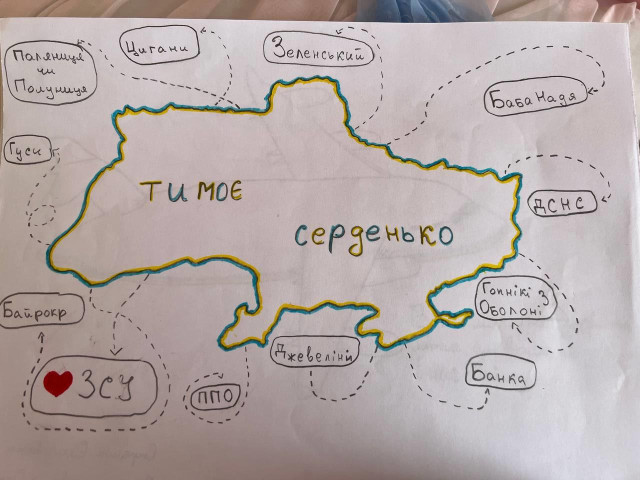 Паляниця
чи
Полуниця
Цигани
Зеленський
Баба Надя
Гуси
ТИ МОЄ
серденько
ДСНС
Гопнікі з
Оболоні
Байрокр
ЗСУ
Джевеліни
Банка
ППО